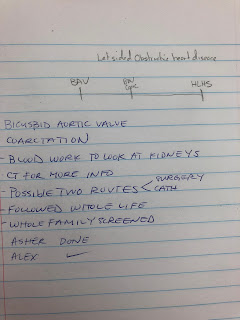 Left sided Obstructive heart disease
BAV HLHS
BICUSPID AORTIC VALVE
COARCTATION
- BLOOD WORK TO LOOK AT KIDNEYS
CT FOR MORE INFO
- POSSIBLE TWO ROUTES < SURGERY
CATH
- FOLLOWED WHOLE LIFE
- WHOLE FAMILY SCREENED
ASHER DONE
ALEX ✓